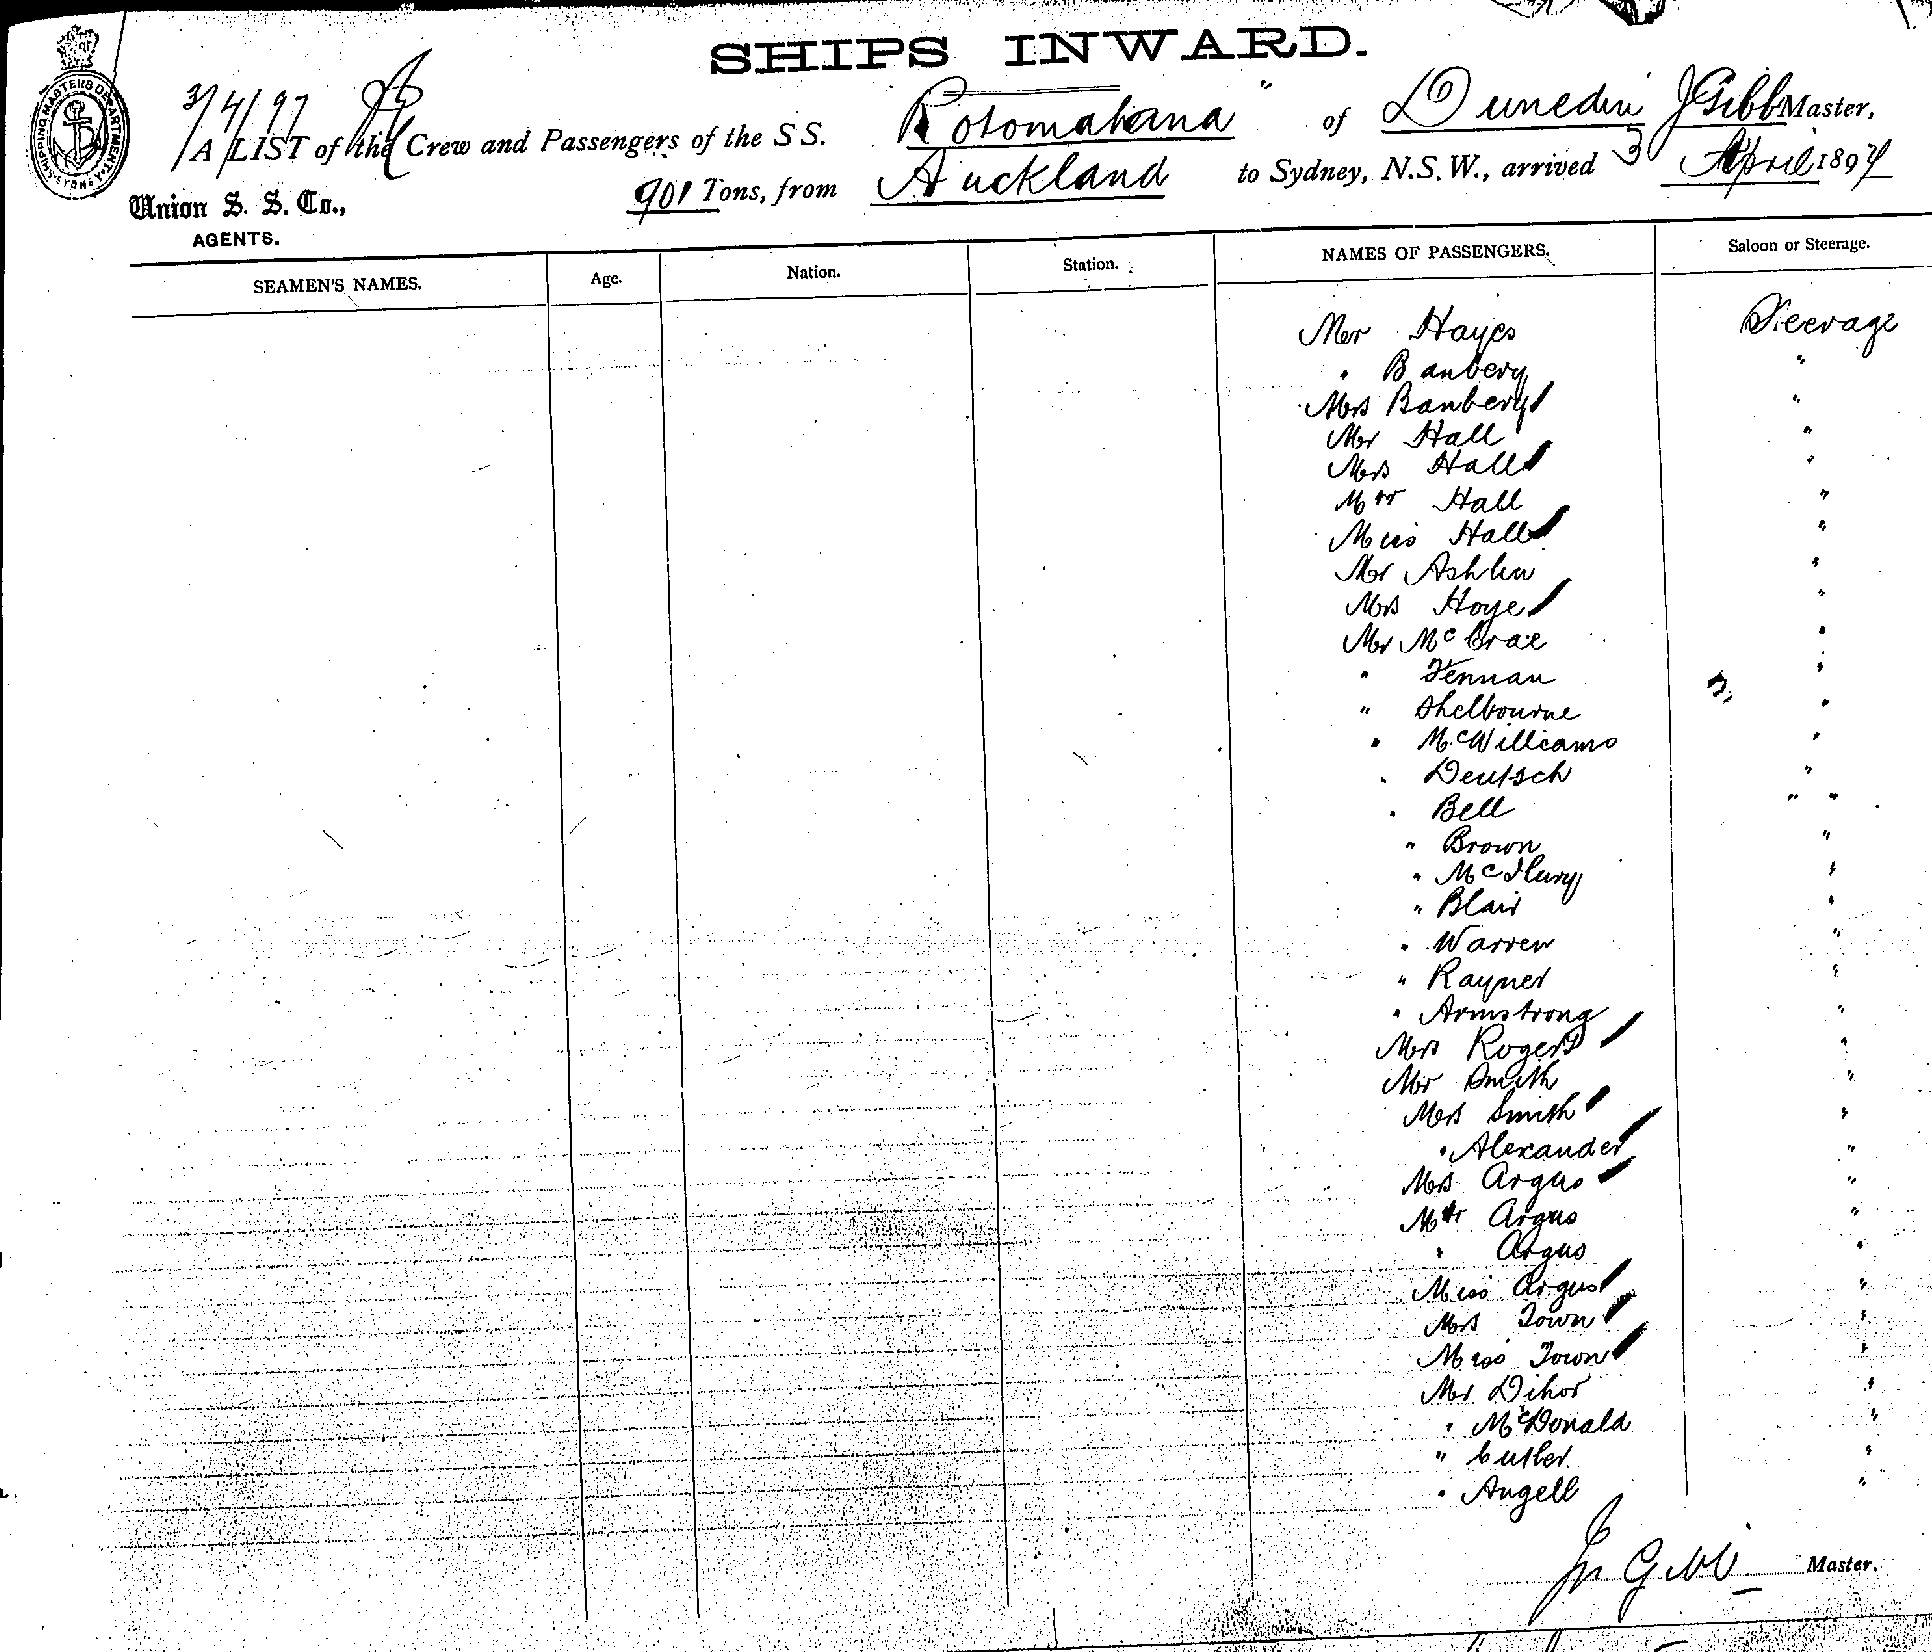 SHIPS INWARD.
3/4/97
A LIST of the Crew and Passengers of the S S. Rotomahana " of Dunedin J Gibb Master,
901 Tons, from Auckland to Sydney, N.S.W., arrived 3 April 1897
Union S. S. Co.,
AGENTS.
SEAMEN'S NAMES. Age. Nation. Station. NAMES OF PASSENGERS. Saloon or Steerage.
Mr Hayes Steerage
" Banbery "
Mrs Banbery "
Mr Hall "
Mrs Hall "
Mstr Hall "
Miss Hall "
Mr Ashlin "
Mrs Hoye "
Mr McCrae "
" Fennan "
" Shelbourne "
" McWilliams "
" Deutsch "
" Bell " "
" Brown "
" McIlury "
" Blair "
" Warren "
" Rayner "
" Armstrong "
Mrs Rogers "
Mr Smith "
Mrs Smith "
" Alexander "
Mrs Argus "
Mstr Argus "
" Argus "
Miss Argus "
Mrs Town "
Miss Town "
Mr Dihor "
" McDonald "
" Cutler "
" Angell "
Jn Gibb Master.